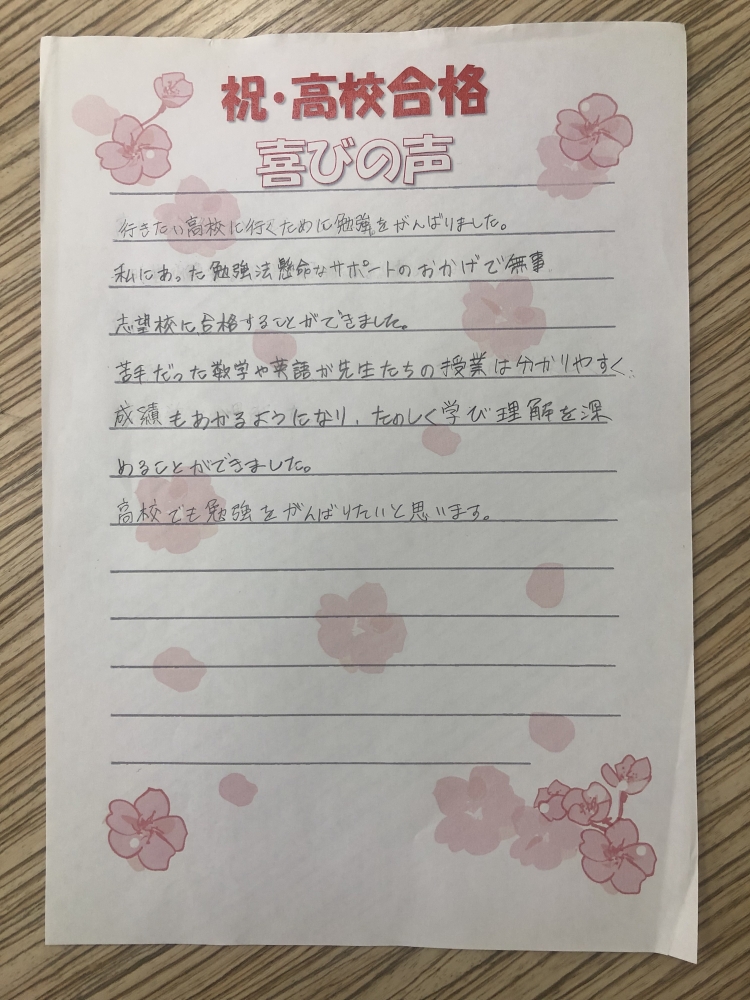 祝・高校合格
喜びの声
行きたい高校に行くために勉強をがんばりました。
私にあった勉強法懸命なサポートのおかげで無事
志望校に合格することができました。
苦手だった数学や英語が先生たちの授業は分かりやすく
成績もあがるようになり、たのしく学び理解を深
めることができました。
高校でも勉強をがんばりたいと思います。